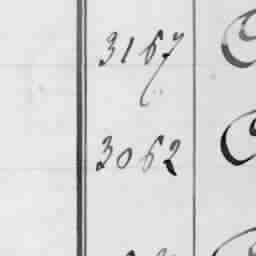 3167
3062